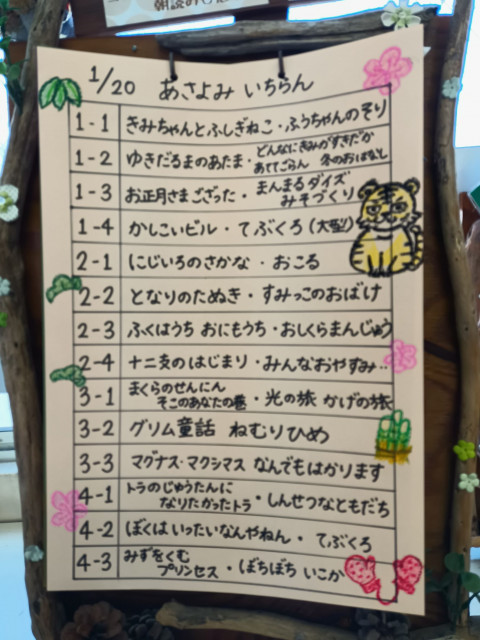 1/20 あさよみ いちらん
1-1 きみちゃんとふしぎねこ・ふうちゃんのそり
1-2 ゆきだるまのあたま・どんなにきみがすきだか
あててごらん 冬のおはなし
1-3 お正月さまござった・まんまるダイズ
みそづくり
1-4 かしこいビル・てぶくろ(大型)
2-1 にじいろのさかな・おこる
2-2 となりのたぬき・すみっこのおばけ
2-3 ふくはうち おにもうち・おしくらまんじゅう
2-4 十二支のはじまり・みんなおやすみ‥
3-1 まくらのせんにん
そこのあなたの巻・光の旅 かげの旅
3-2 グリム童話 ねむりひめ
3-3 マグナス・マクシマス なんでもはかります
4-1 トラのじゅうたんに
なりたかったトラ・しんせつなともだち
4-2 ぼくはいったいなんやねん・てぶくろ
4-3 みずをくむ
プリンセス・ぼちぼち いこか